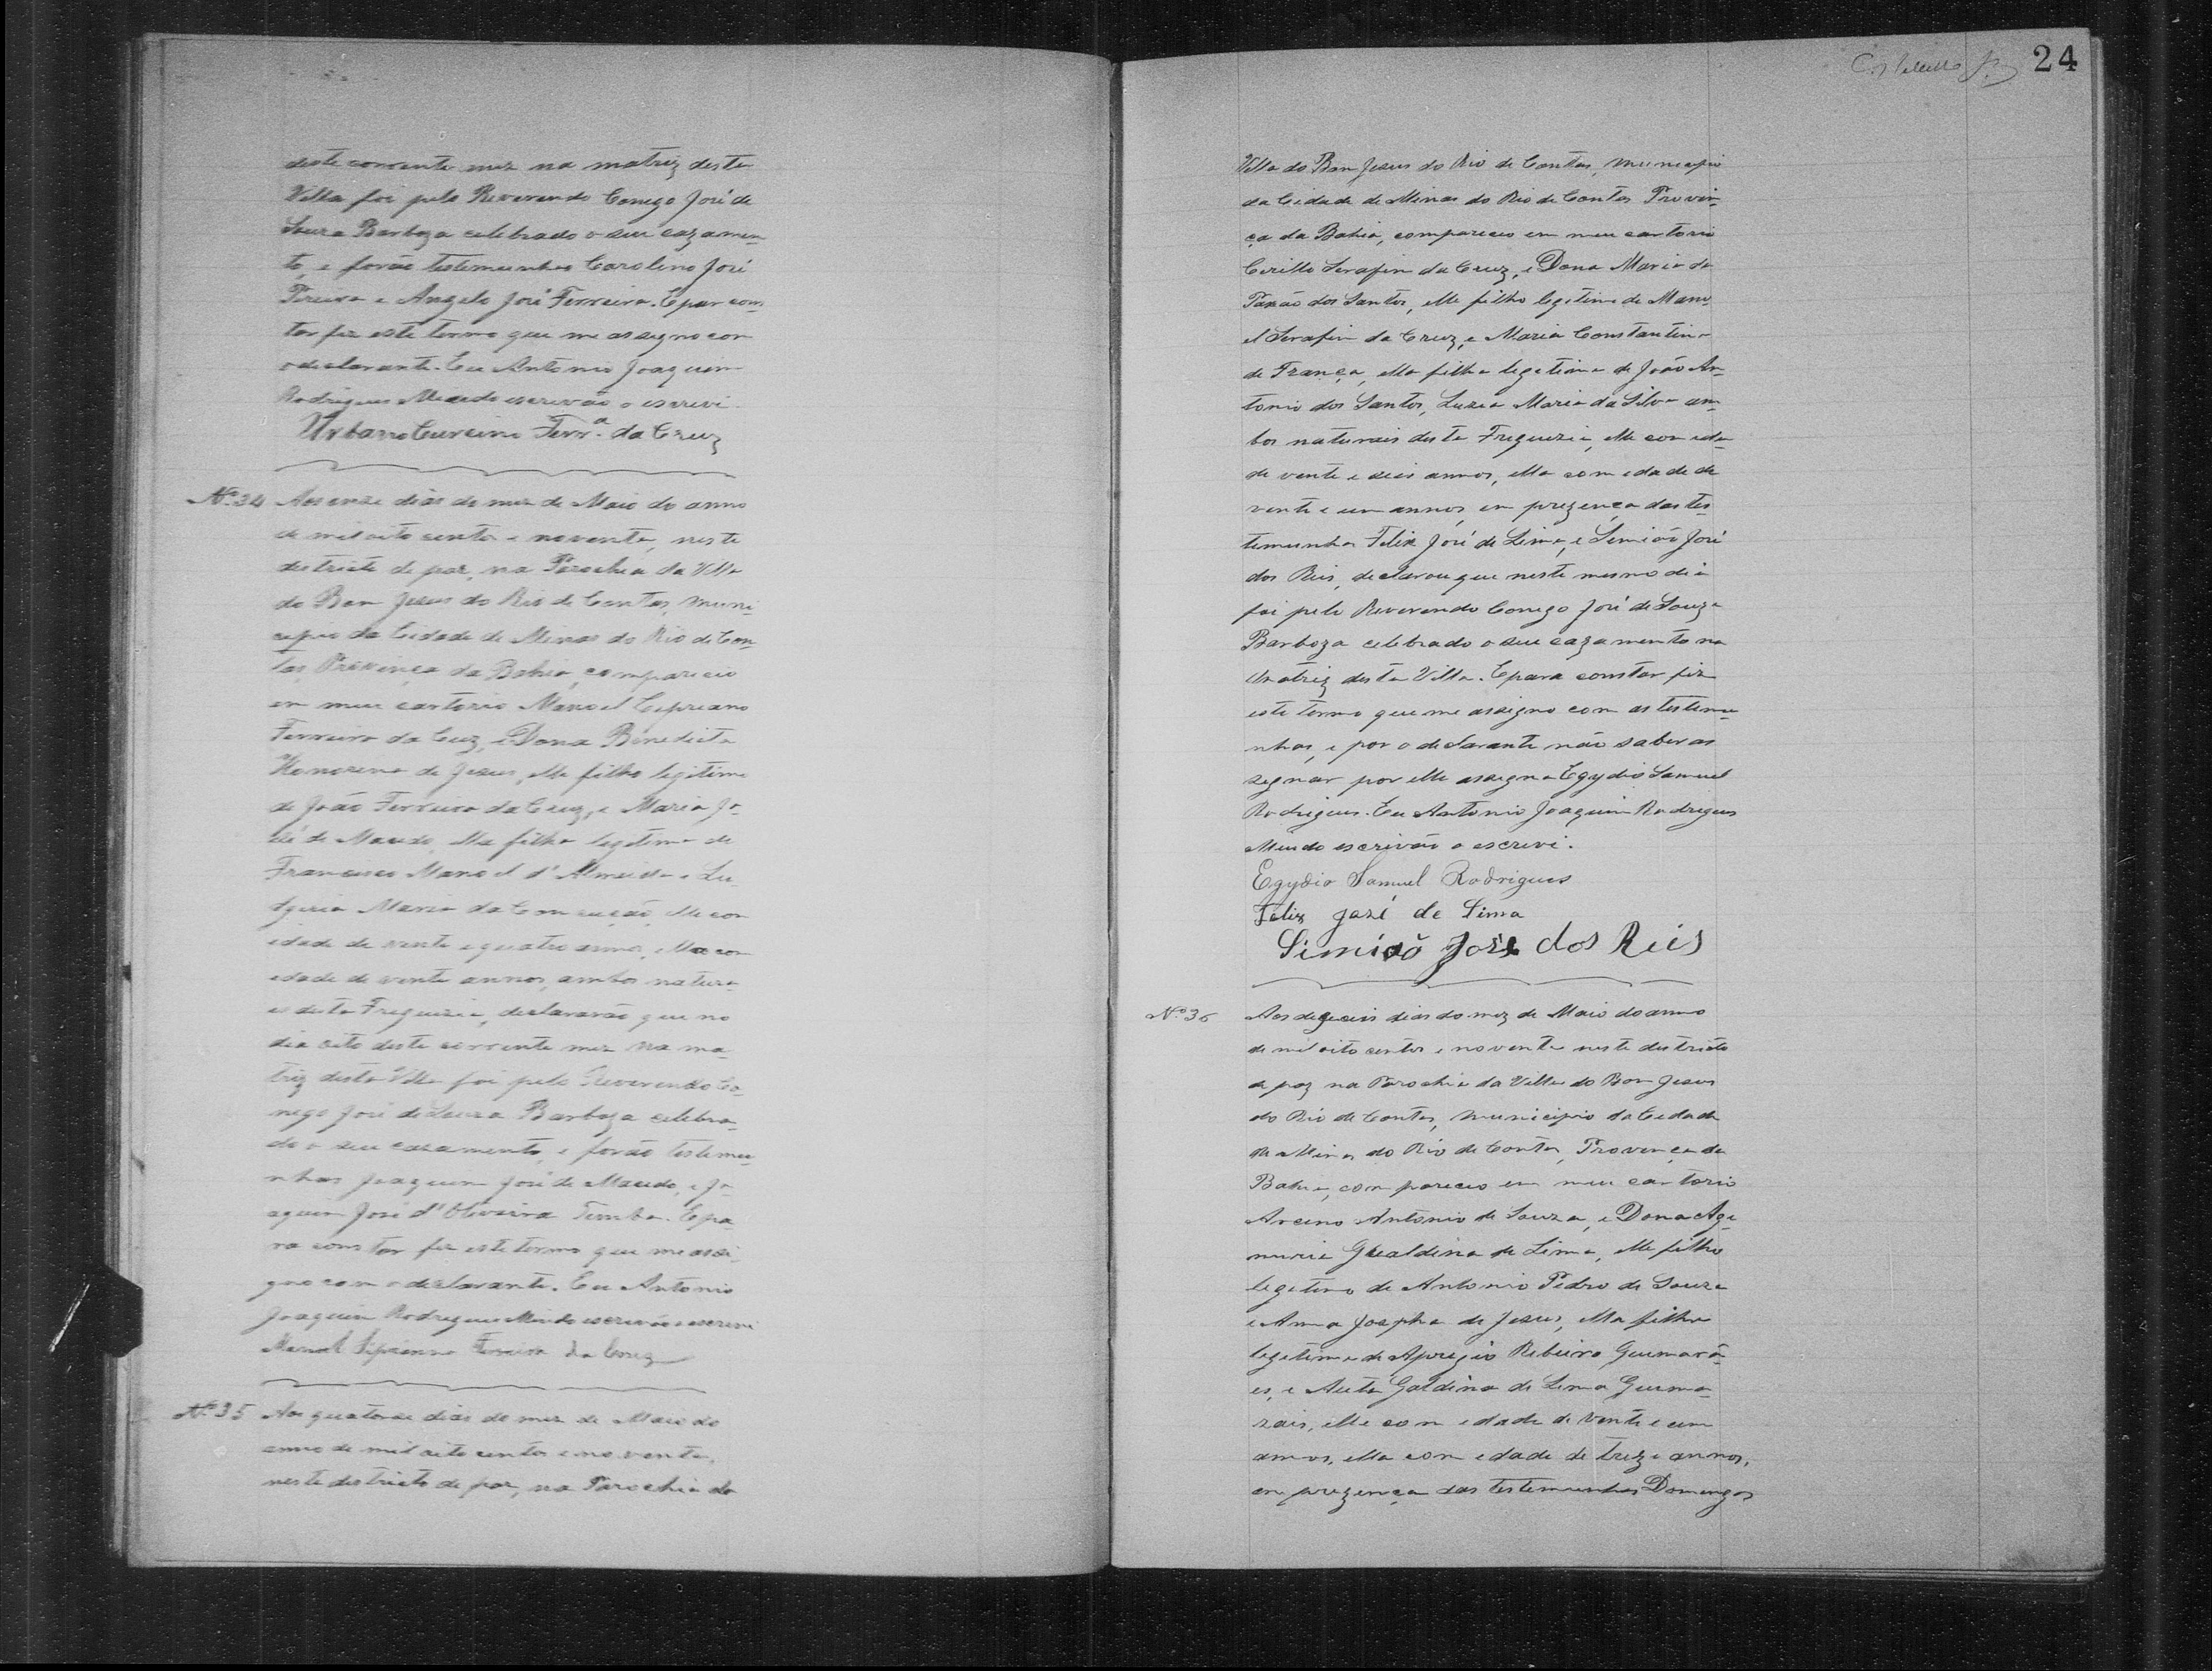 deste corrente mez na matriz desta
Villa foi pelo Reverendo Conego José de
Souza Barboza celebrado o seu cazamen-
to, e forão testemunhas Carolino José
Pereira e Angelo José Ferreira. E par cons-
tar fiz este termo que me assigno com
o declarante. Eu Antonio Joaquim
Rodrigues Macedo escrivão o escrevi.
Urbano Curcino Ferr.ª da Cruz
Nº 34 Aos onze dias do mez de Maio do anno
de mil oito centos e noventa, neste
destricto de paz, na Parochia da Villa
do Bom Jesus do Rio de Contas, muni-
cipio da Cidade de Minas do Rio de Con-
tas, Provinça da Bahia, compareceo
em meu cartorio Manoel Cepreano
Ferreira da Cuz, e Dona Benedicta
Honorina de Jesus, elle filho legitimo
de João Ferreira da Cruz, e Maria Jo-
sé de Macedo, ella filha legitima de
Francisco Manoel d'Almeida e Lu-
dgeria Maria da Conceição, elle com
idade de vente e quatro annos, ella com
edade de vente annos, ambos natura-
es desta Freguezia, declararão que no
dia oito deste corrente mez na ma-
triz desta Villa foi pelo Reverendo Co-
nego José de Souza Barboza celebra-
do o seu casamento, e forão testemu-
nhas Joaquim José de Macedo, e Jo-
aquim José d'Oliveira Timba. E pa-
ra constar fiz este termo que me assi-
gno com o declarante. Eu Antonio
Joaquim Rodrigues Macedo escrivão o escrevi
Manoel Siprianno Ferreira da Cruz
Nº 35 Aos quatorze dias do mez de Maio do
anno de mil oito centos e noventa,
neste destricto de paz, na Parochia da
24
Villa do Bom Jesus do Rio de Contas, municipio
da Cidade de Minas do Rio de Contas Provin-
ça da Bahia, compareceo em meu cartorio
Cerillo Serafim da Cruz, e Dona Maria da
Paixão dos Santos, elle filho legitimo de Mano-
el Serafim da Cruz, e Maria Constantina
de França, ella filha legetima de João An-
tonio dos Santos, Luzia Maria da Silva am-
bos naturais desta Freguezia, elle com eda-
de vente e seis annos, ella com edade de
vente e um annos, em prezença das tes-
temunhas Felix José de Lima, e Simião José
dos Reis, declarou que neste mesmo dia
foi pelo Reverendo Conego José de Souza
Barboza celebrado o seu cazamento na
Matriz desta Villa. E para constar fiz
este termo que me assigno com as testemu-
nhas, e por o declarante não saber as-
segnar por elle assegna Egydio Samuel
Rodrigues. Eu Antonio Joaquim Rodrigues
Macedo escrivão o escrevi.
Egydio Samuel Rodrigues
Felix José de Lima
Simião José dos Reis
Nº 36 Aos dezeceis dias do mez de Maio do anno
de mil oito centos e noventa neste destricto
de paz na Parochia da Villa do Bom Jesus
do Rio de Contas, municipio da Cidade
de Minas do Rio de Contas, Provença da
Bahia, compareceo em meu cartorio
Antonio de Souza, e Dona
Gealdina de Lima, elle filho
legetimo de Antonio Pedro de Souza
e Anna Josepha de Jesus, ella filha
legetima de Aprigio Ribeiro Guimarã-
es, e Auta Galdina de Lima Guima-
rais, elle com edade de vente e um
annos, ella com edade de treze annos,
em prezença das testemunhas Domingos